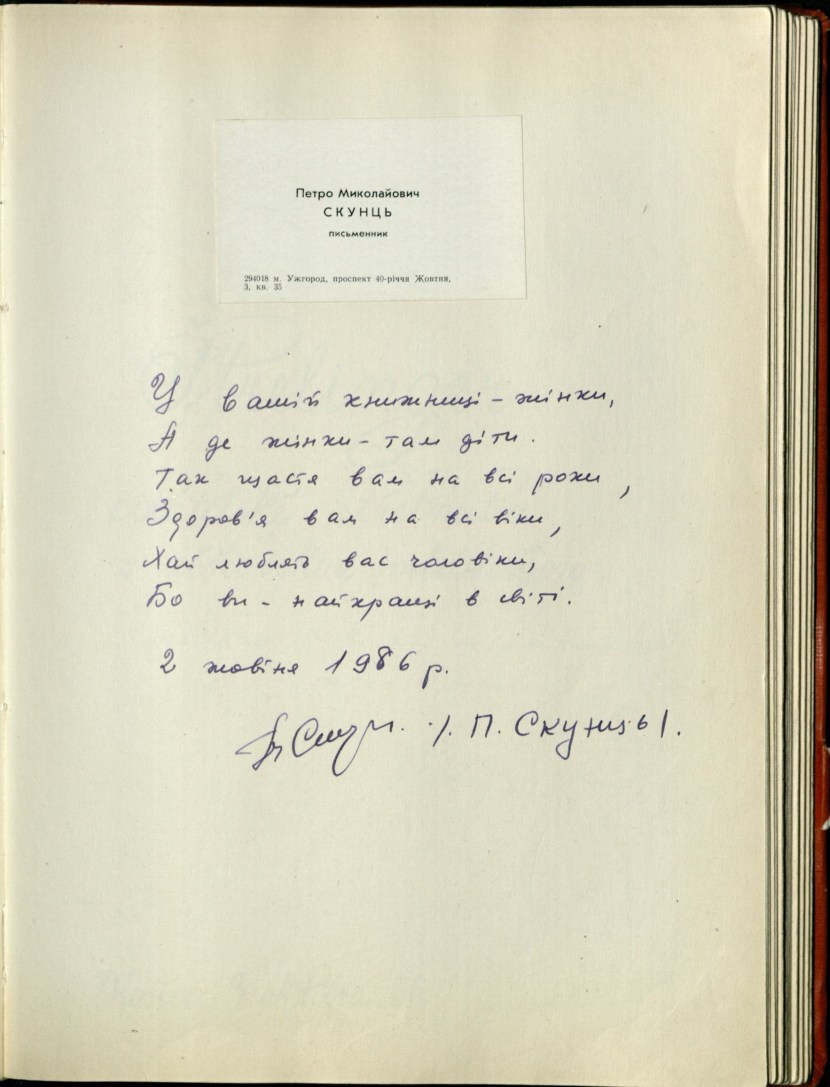 Петро Миколайович
СКУНЦЬ
письменник
294018 м. Ужгород, проспект 40-річчя Жовтня,
3, кв. 35
У вашій книжниці – жінки,
А де жінки – там діти.
Так щастя вам на всі роки,
Здоров'я вам на всі віки,
Хай люблять вас чоловіки,
Бо ви – найкращі в світі.
2 жовтня 1986 р.
/. П. Скунць/.